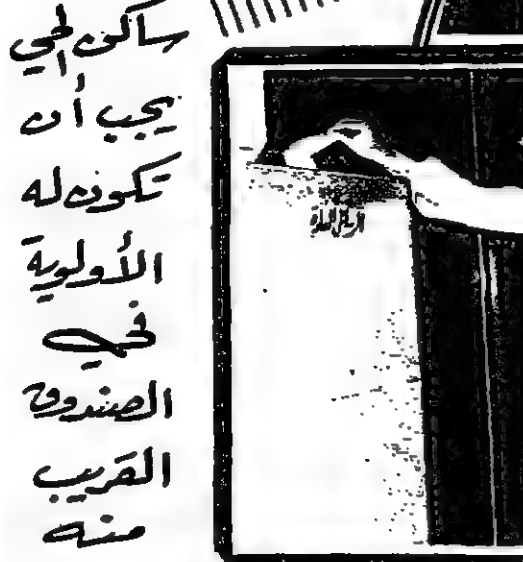 ساكن الحي
يجب أن
تكون له
الأولوية
في
الصندوق
القريب
منه